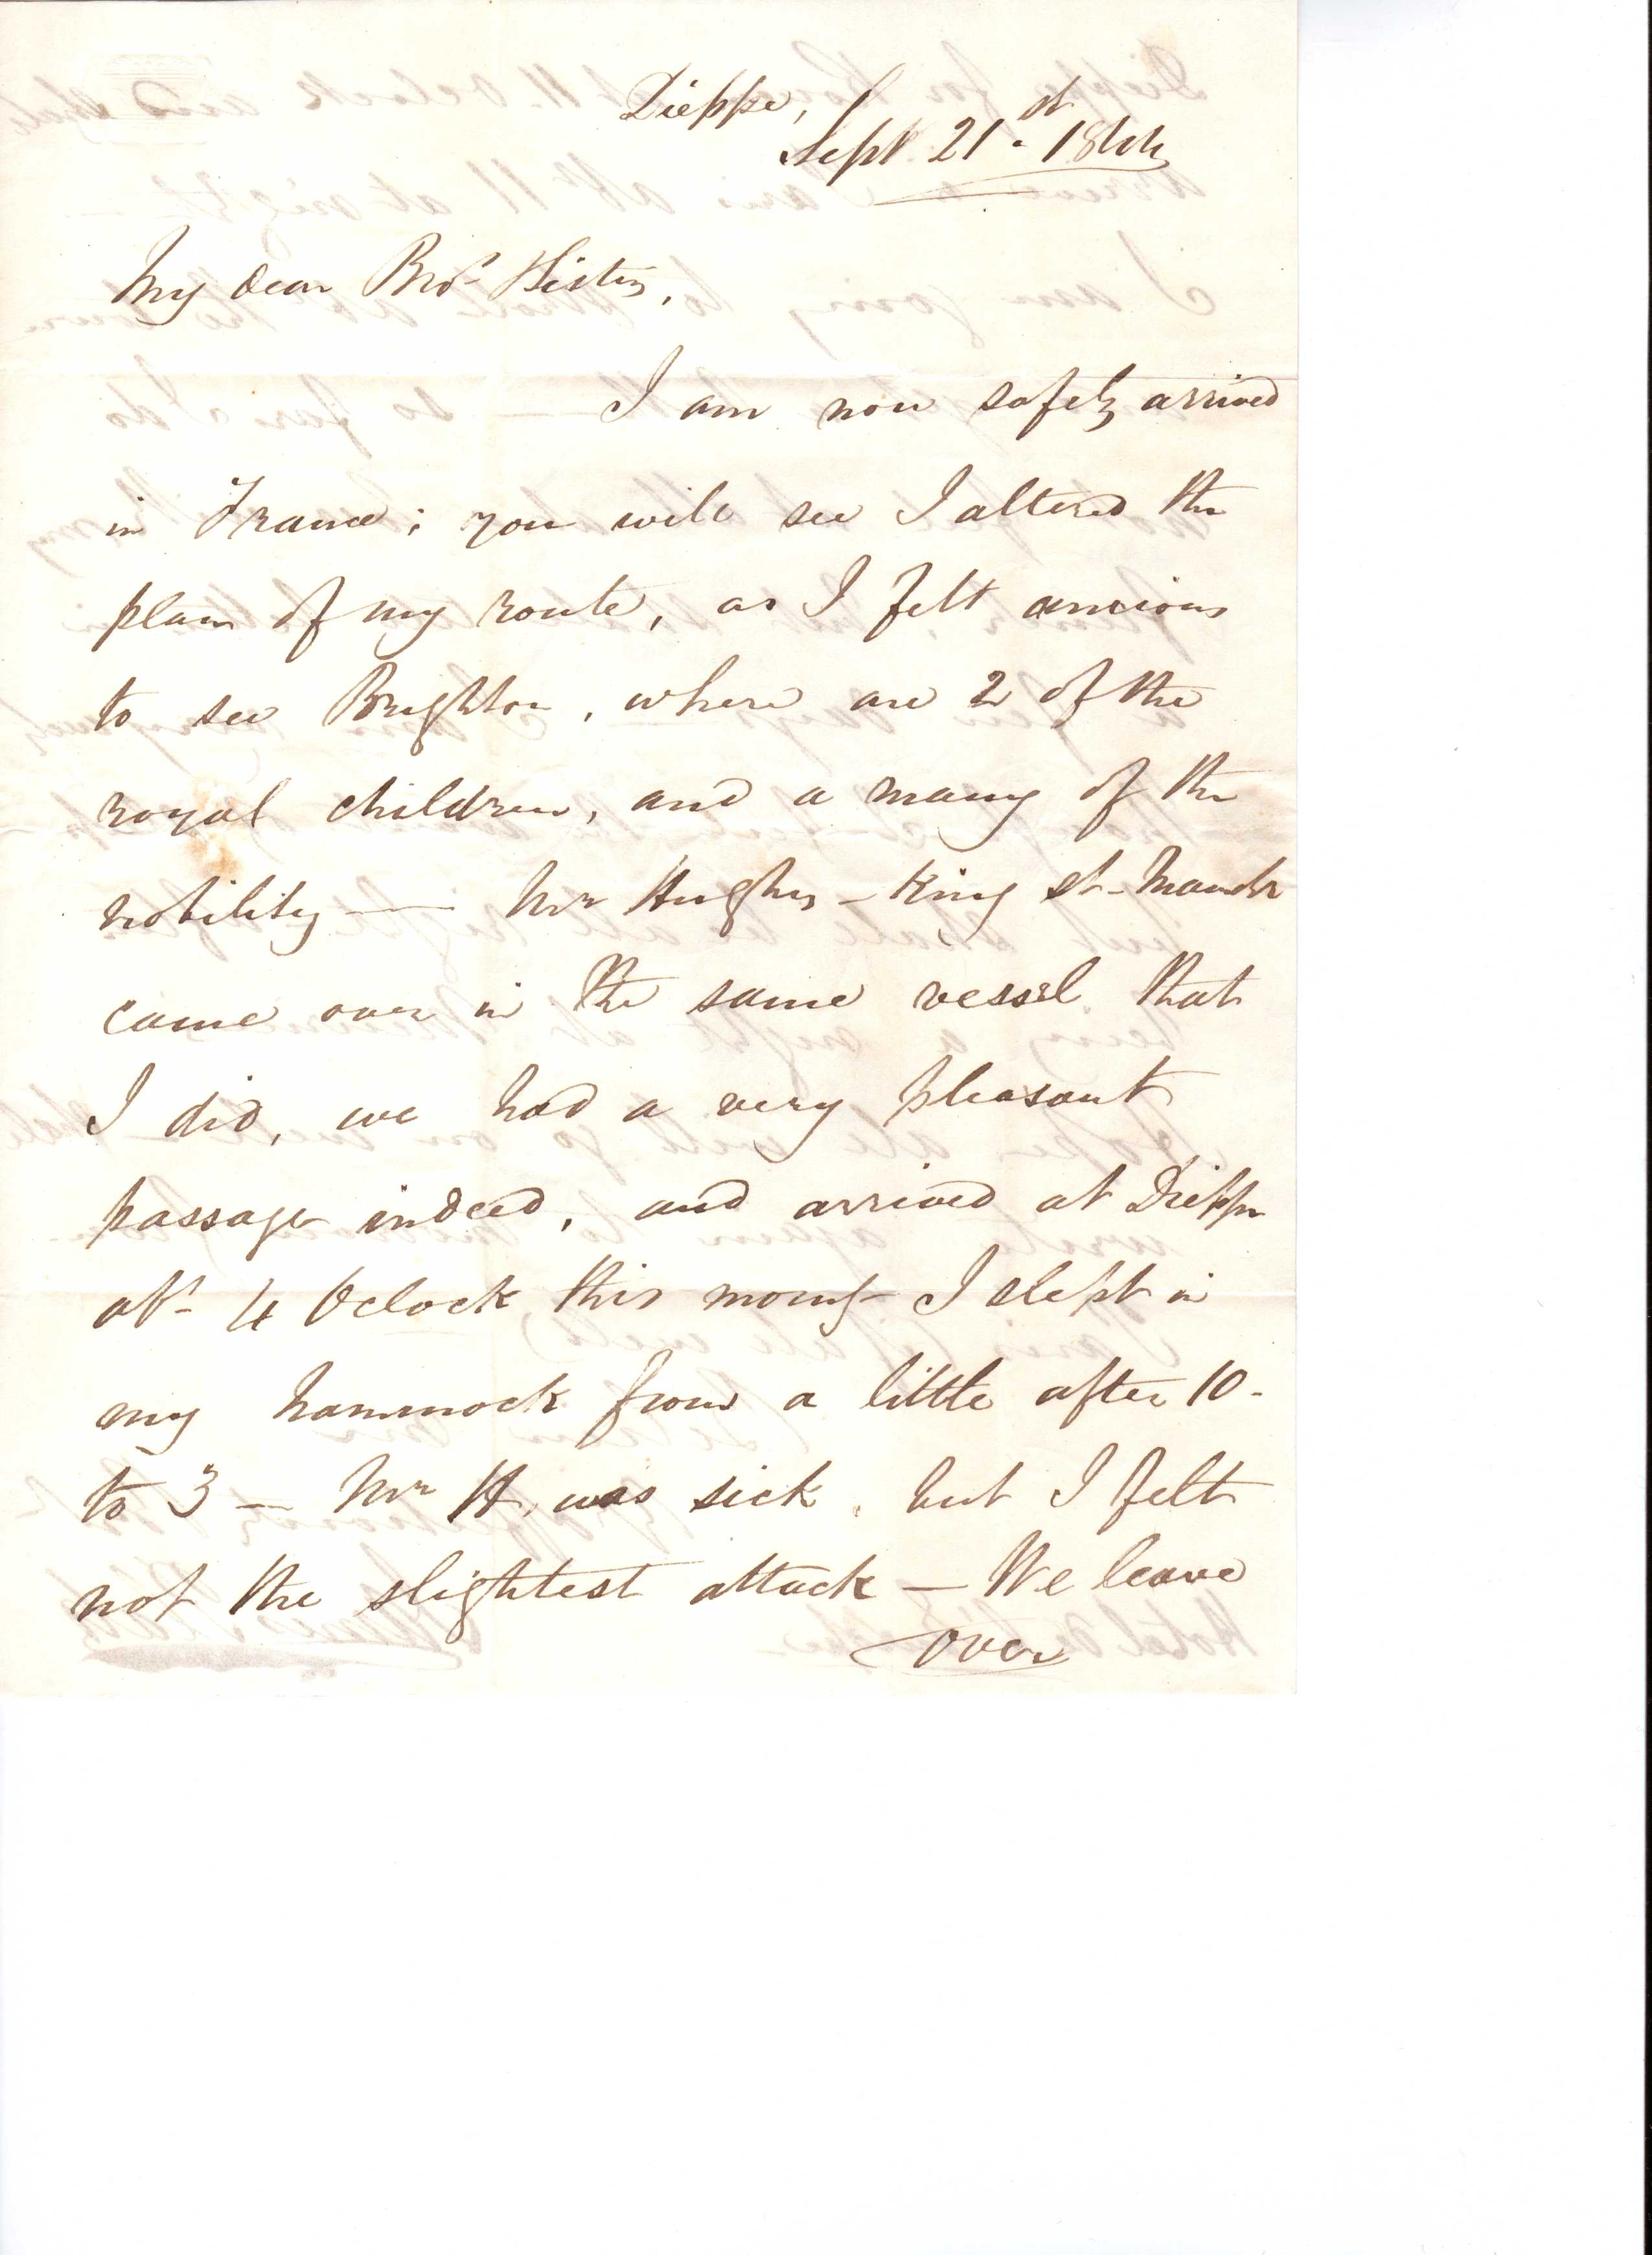 Dieppe,
Sept 21st 1844
My dear Bror & Sister,
I am now safely arrived
in France; you will see I altered the
plan of my route, as I felt anxious
to see Brighton, where are 2 of the
royal children, and a many of the
nobility — Mr Hughes - King St - Manchr
came over in the same vessel that
I did, we had a very pleasant
passage indeed, and arrived at Dieppe
abt 4 Oclock this morng - I slept in
my hammock from a little after 10 -
to 3 — Mr H. was sick, but I felt
not the slightest attack — We leave
over